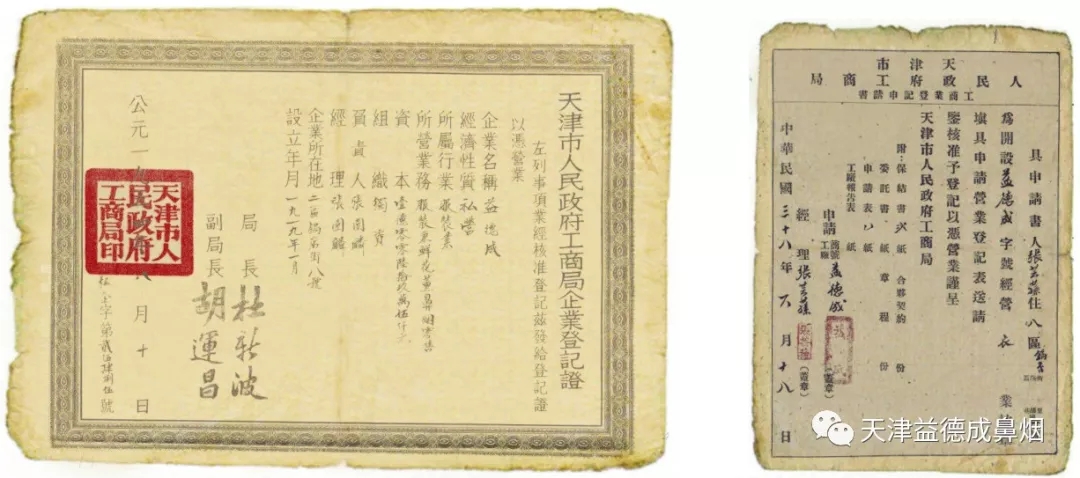 天津市人民政府工商局企業登記證
左列事項業經核准登記茲發給登記證
以憑營業
企業名稱 益德成
經濟性質 私營
所屬行業 服裝業
所營業務 服裝兼鮮花薰鼻烟零售
資本
組織 獨資
負責人 張
經理 張
企業所在地 二區鍋店街八號
設立年月 一九一九年一月
局長 杜新波
副局長 胡運昌
公元一 八月十日
天津市人民政府工商局印
字第 號
天津市
人民政府工商局
工商業登記申請書
具申請書人張 住八區鍋店街
為開設益德成字號經營衣業
填具申請營業登記表送請
鑒核准予登記以憑營業謹呈
天津市人民政府工商局
附:保結書 紙 合夥契約 份
委託書 紙 章程 份
申請表 紙
工廠報告表
申請商號工廠 益德成 (蓋章)
經理 張 (蓋章)
中華民國三十八年六月十八日
天津益德成鼻烟